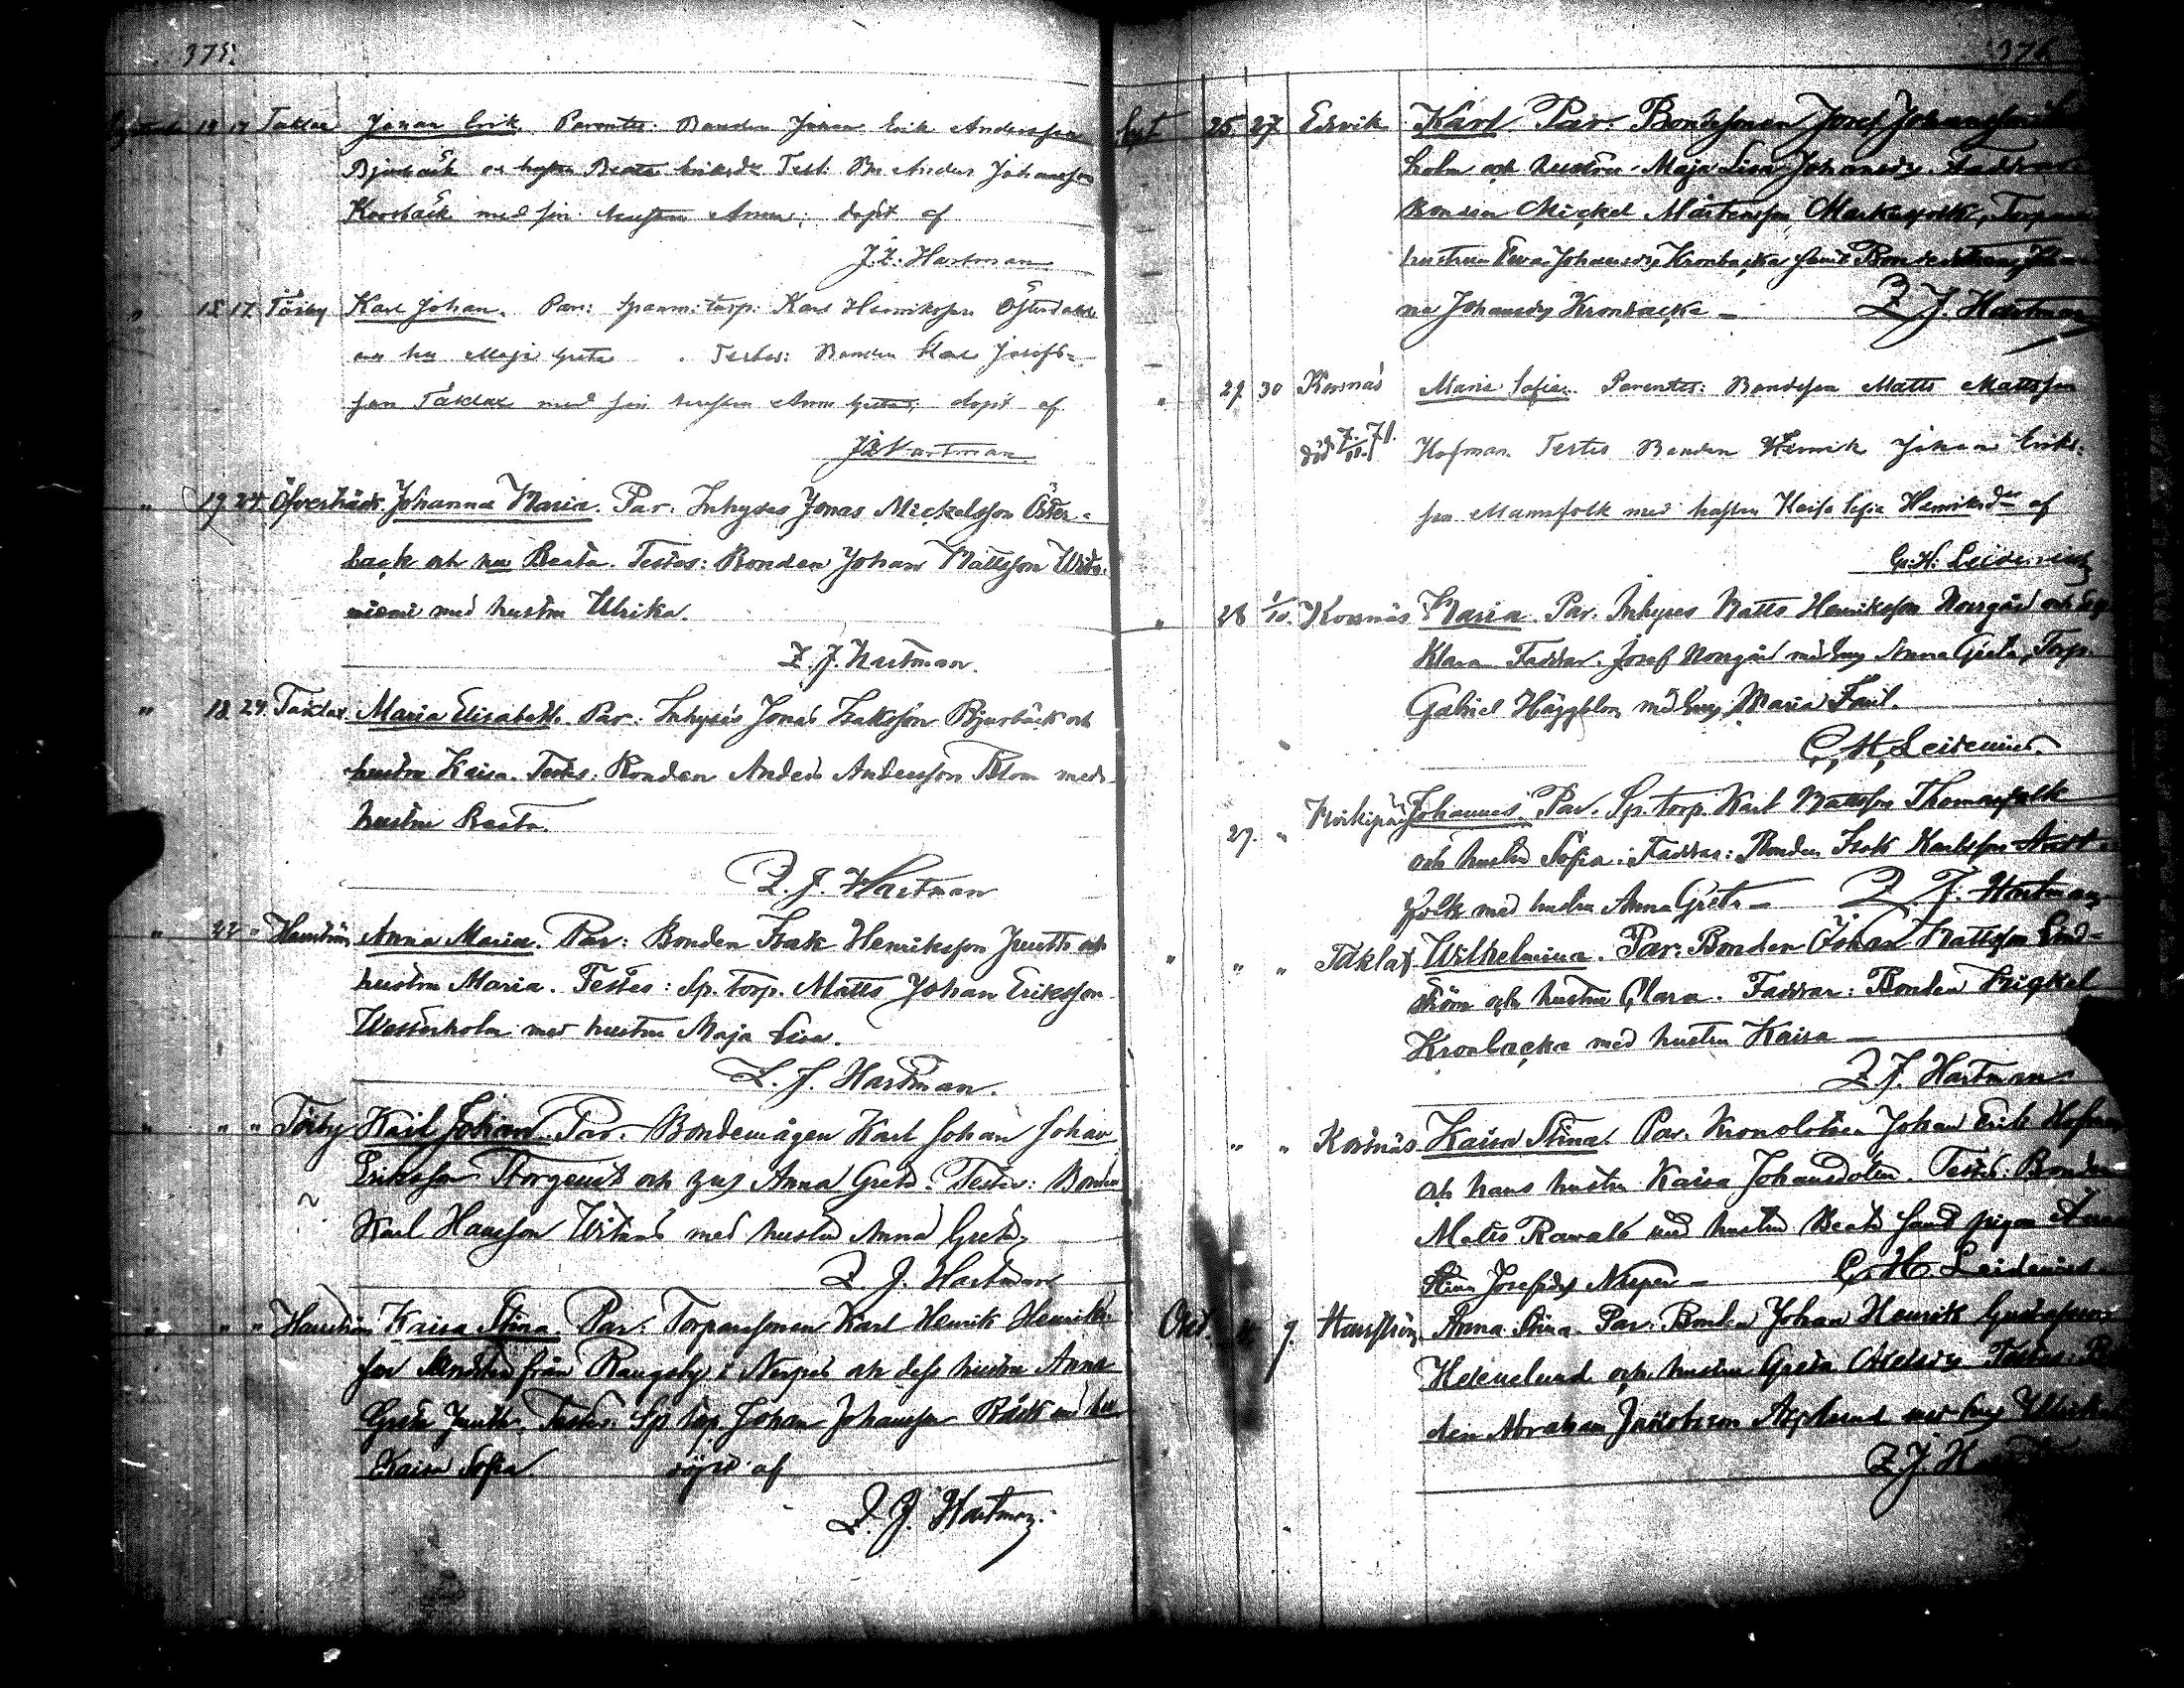 375.
14 17 Taklax Johan Erik. Parentes: Bonden Johan Erik Andersson
Bjurbäck och hustru Beata Eriksdr Test: Bn Anders Johansson
Korsbäck med sin hustru Anna; döpt af
J. Z. Hartman
" 15 17 Töjby Karl Johan. Par: Spanm: torp: Karl Henriksson Österdahl
och hu Maja Greta. Testes: Bonden Karl Josefs=
son Taklax med sin hustru Anna Greta, döpt af
J Z Hartman
" 19 24 Öfverbäck Johanna Maria. Par. Inhyses Jonas Mickelsson Öster-
back och hu Beata. Testes: Bonden Johan Mattsson
med hustru Ulrika.
Z. J. Hartman.
" 18 24 Taklax Maria Elisabeth. Par: Inhyses Jonas Isaksson Bjurbäck och
hustru Kaisa. Testes: Bonden Anders Andersson Blom med
hustru Beata.
Z. J. Hartman
" 22 " Harrström Anna Maria. Par: Bonden Isak Henriksson Juuth och
hustru Maria. Testes: Sp. torp. Matts Johan Eriksson
Westerholm med hustru Maja Lisa.
Z. J. Hartman.
" " " Töjby Karl Johan. Par. Bondemågen Karl Johan Johan
Eriksson Storgeust och hus Anna Greta. Testes: Bonden
Karl Hansson Witnäs med hustru Anna Greta,
Z. J. Hartman
" " " Harrström Kaisa Stina Par: Torparesonen Karl Henrik Henriks
son från Rangsby i Nerpes och dess hustru Anna
Greta Juuth. Testes: Sp torp. Johan Johansson Bäck med hu
Kaisa Sofia döpt af
Z. J. Hartman.
376.
Sept 25 27 Edsvik Karl Par: Bondesonen Josef Johansson
holm och hustru Maja Lisa Johansdr. Faddrar
Bonden Mickel Mårtensson Markusfolk, Torpare
hustrun Eva Johansdr Kronbacka samt Bondedottren
na Johansdr Kronbacka — Z. J. Hartman
" 29 30 Korsnäs Maria Sofia. Parentes: Bondeson Matts Mattsson
död Hofman. Testes Bonden Henrik Johan Eriks-
son Mannfolk med hustru Kaisa Sofia Henriksdr af
G. H. Leidenius
" 28 1/10. Korsnäs Maria. Par. Inhyses Matts Henriksson Norrgård och hg
Klara Faddrar. Josef Norrgård med hug Anna Greta, Torp.
Gabriel Häggblom med hug Maria
G. H. Leidenius.
27. " Johannes. Par. Sp. torp. Karl Mattsson Thomasfolk
och hustru Sofia. Faddrar: Bonden Isak Karlsson
folk med hustru Anna Greta — Z. J. Hartman
" " " Taklax Wilhelmina. Par: Bonden Johan Mattsson Lind=
ström och hustru Clara. Faddrar: Bonden Mickel
Kronbacka med hustru Kaisa —
Z. J. Hartman
" " Korsnäs Kaisa Stina. Par. Kronolotsen Johan Erik Hofman
och hans hustru Kaisa Johansdotter. Testes: Bonden
Matts Rawals med hustru Beata samt pigan Anna
Stina Josefsdr Nerpes — G. H. Leidenius.
Okt. 9 Harrström Anna Stina. Par. Bonden Johan Henrik Gustafsson
Hexenlund och hustru Greta Testes: Bn
den Abraham Jakobsson Asplund med hug Ulrika
Z J. H